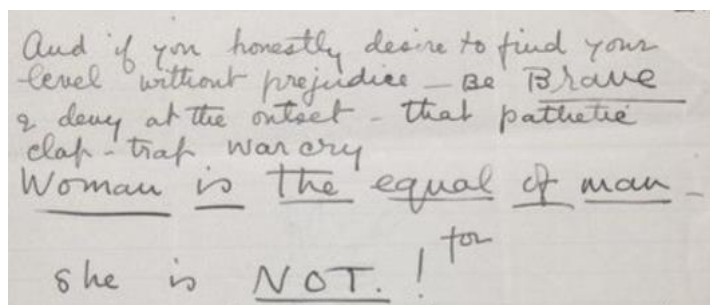 And if you honestly desire to find your
level without prejudice — Be Brave
& deny at the outset — that pathetic
clap-trap war cry
Woman is the equal of man —
for
she is NOT. !